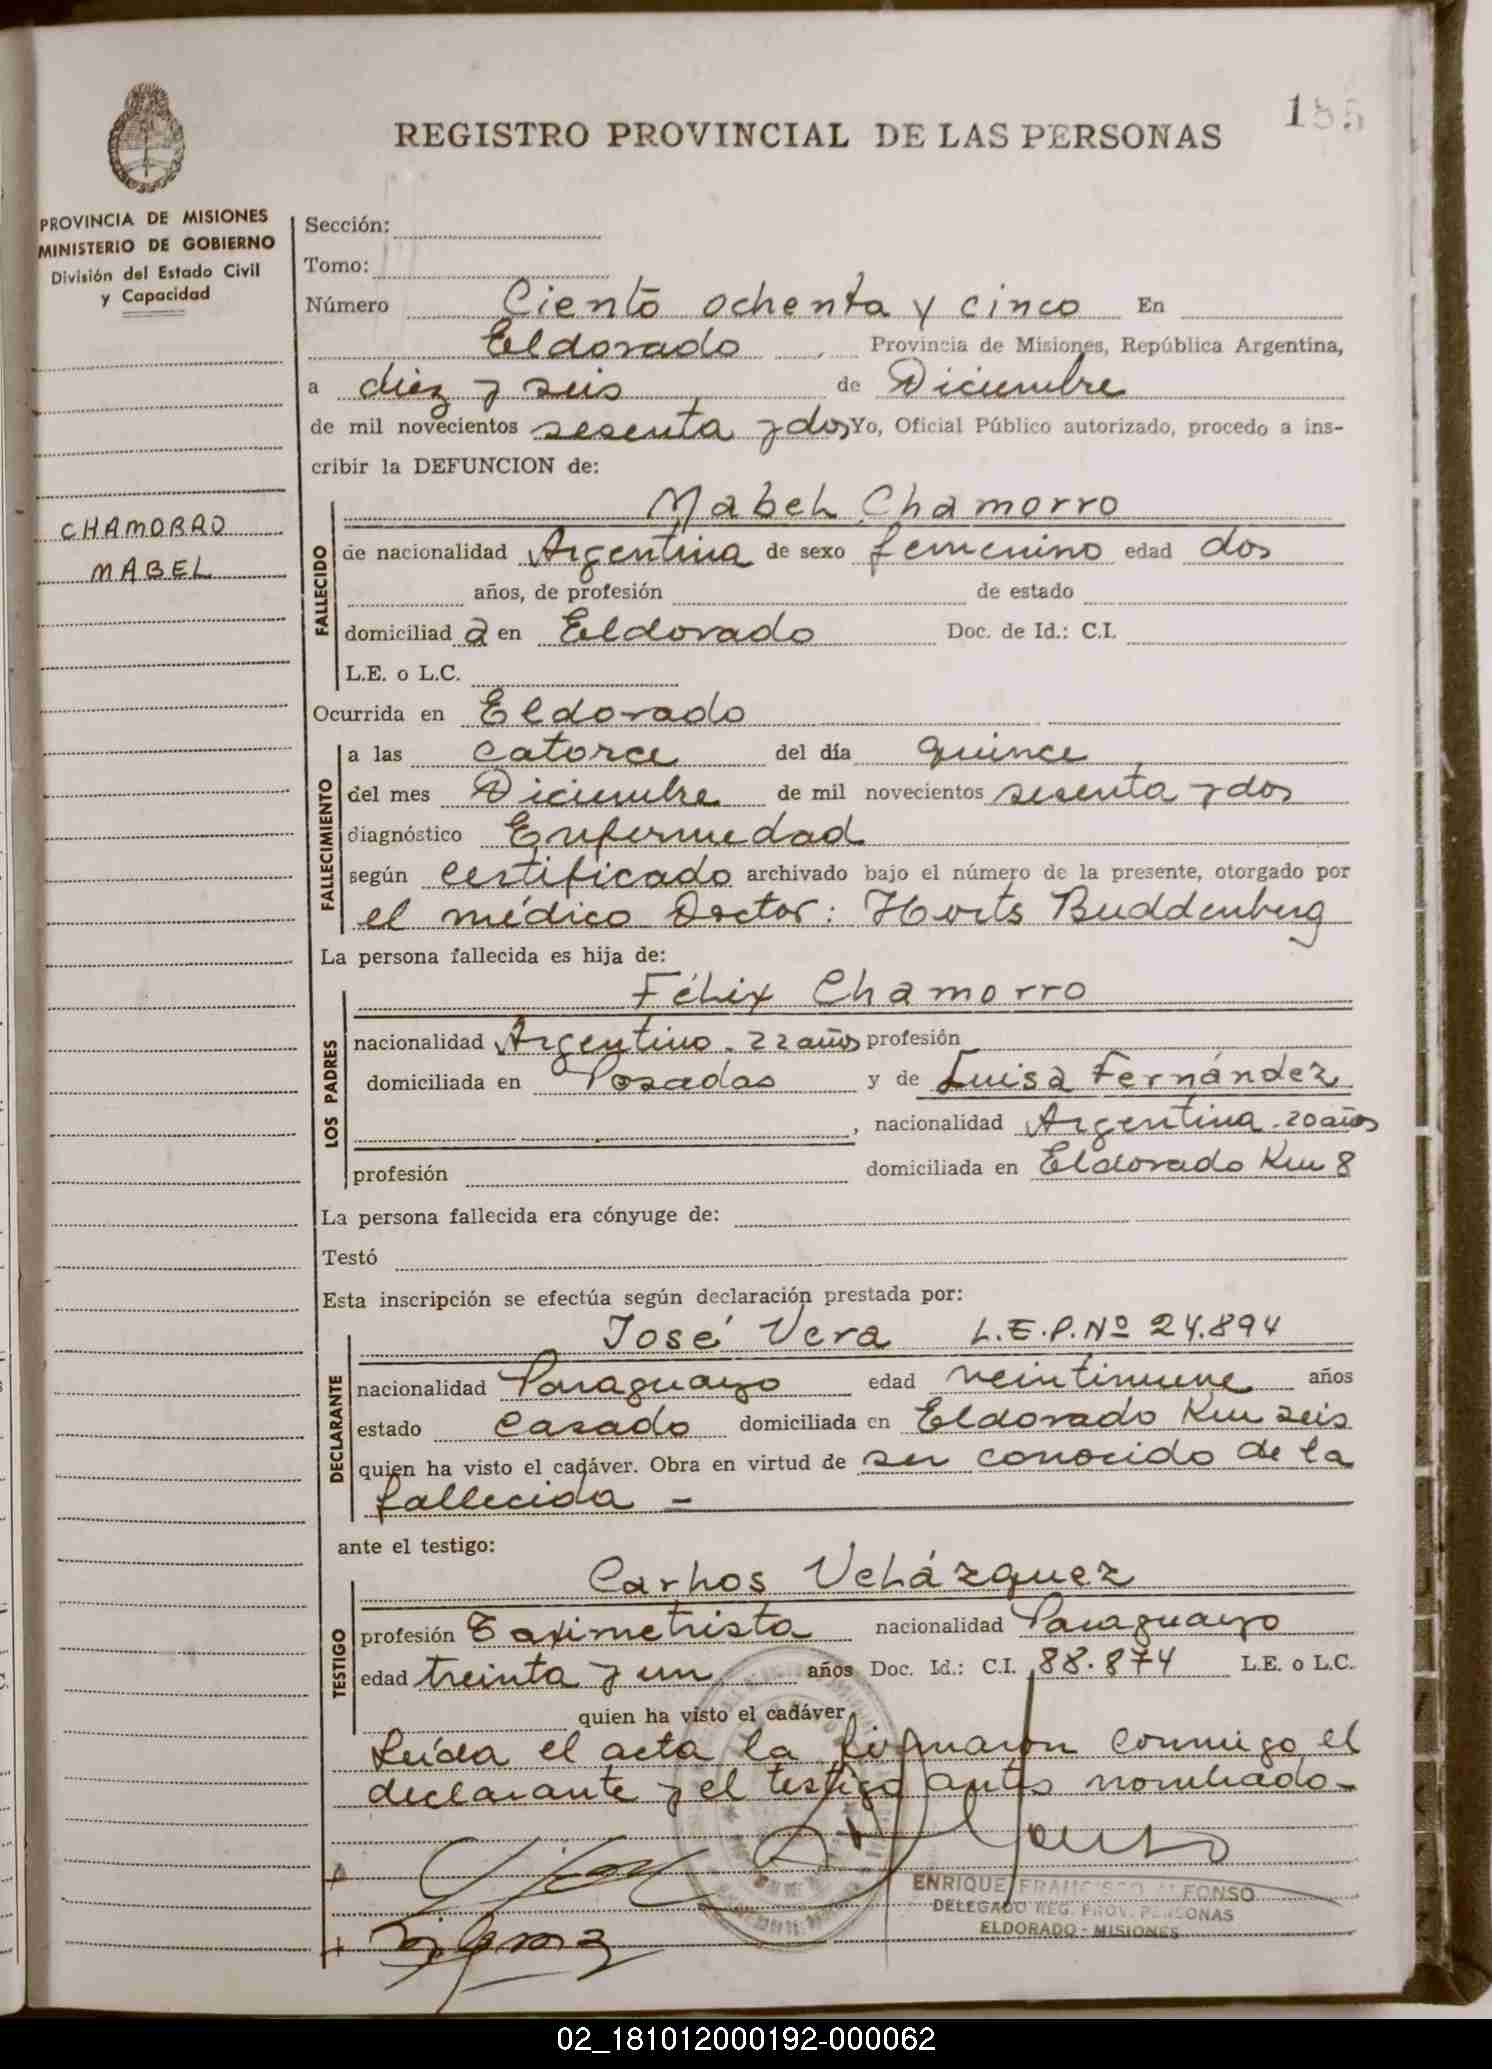 185
REGISTRO PROVINCIAL DE LAS PERSONAS
PROVINCIA DE MISIONES
MINISTERIO DE GOBIERNO
División del Estado Civil
y Capacidad
CHAMORRO
MABEL
Sección:
Tomo:
Número Ciento ochenta y cinco En
Eldorado Provincia de Misiones, República Argentina,
a diez y seis de Diciembre
de mil novecientos sesenta y dos Yo, Oficial Público autorizado, procedo a ins-
cribir la DEFUNCION de:
FALLECIDO
Mabel Chamorro
de nacionalidad Argentina de sexo femenino edad dos
años, de profesión de estado
domiciliada en Eldorado Doc. de Id.: C.I.
L.E. o L.C.
Ocurrida en Eldorado
FALLECIMIENTO
a las catorce del día quince
del mes Diciembre de mil novecientos sesenta y dos
diagnóstico Enfermedad
según certificado archivado bajo el número de la presente, otorgado por
el médico Doctor: Horts Buddenberg
La persona fallecida es hija de:
LOS PADRES
Félix Chamorro
nacionalidad Argentino. 22 años profesión
domiciliada en Posadas y de Luisa Fernández
, nacionalidad Argentina. 20 años
profesión domiciliada en Eldorado Km 8
La persona fallecida era cónyuge de:
Testó
Esta inscripción se efectúa según declaración prestada por:
DECLARANTE
José Vera L.E.P.Nº 24.894
nacionalidad Paraguayo edad veintinueve años
estado casado domiciliada en Eldorado Km seis
quien ha visto el cadáver. Obra en virtud de ser conocido de la
fallecida -
ante el testigo:
TESTIGO
Carlos Velázquez
profesión Taximetrista nacionalidad Paraguayo
edad treinta y un años Doc. Id.: C.I. 88.874 L.E. o L.C.
quien ha visto el cadáver.
Leída el acta la firmaron conmigo el
declarante y el testigo antes nombrado-
ENRIQUE FRANCISCO ALFONSO
DELEGADO REG. PROV. PERSONAS
ELDORADO - MISIONES
02_181012000192-000062